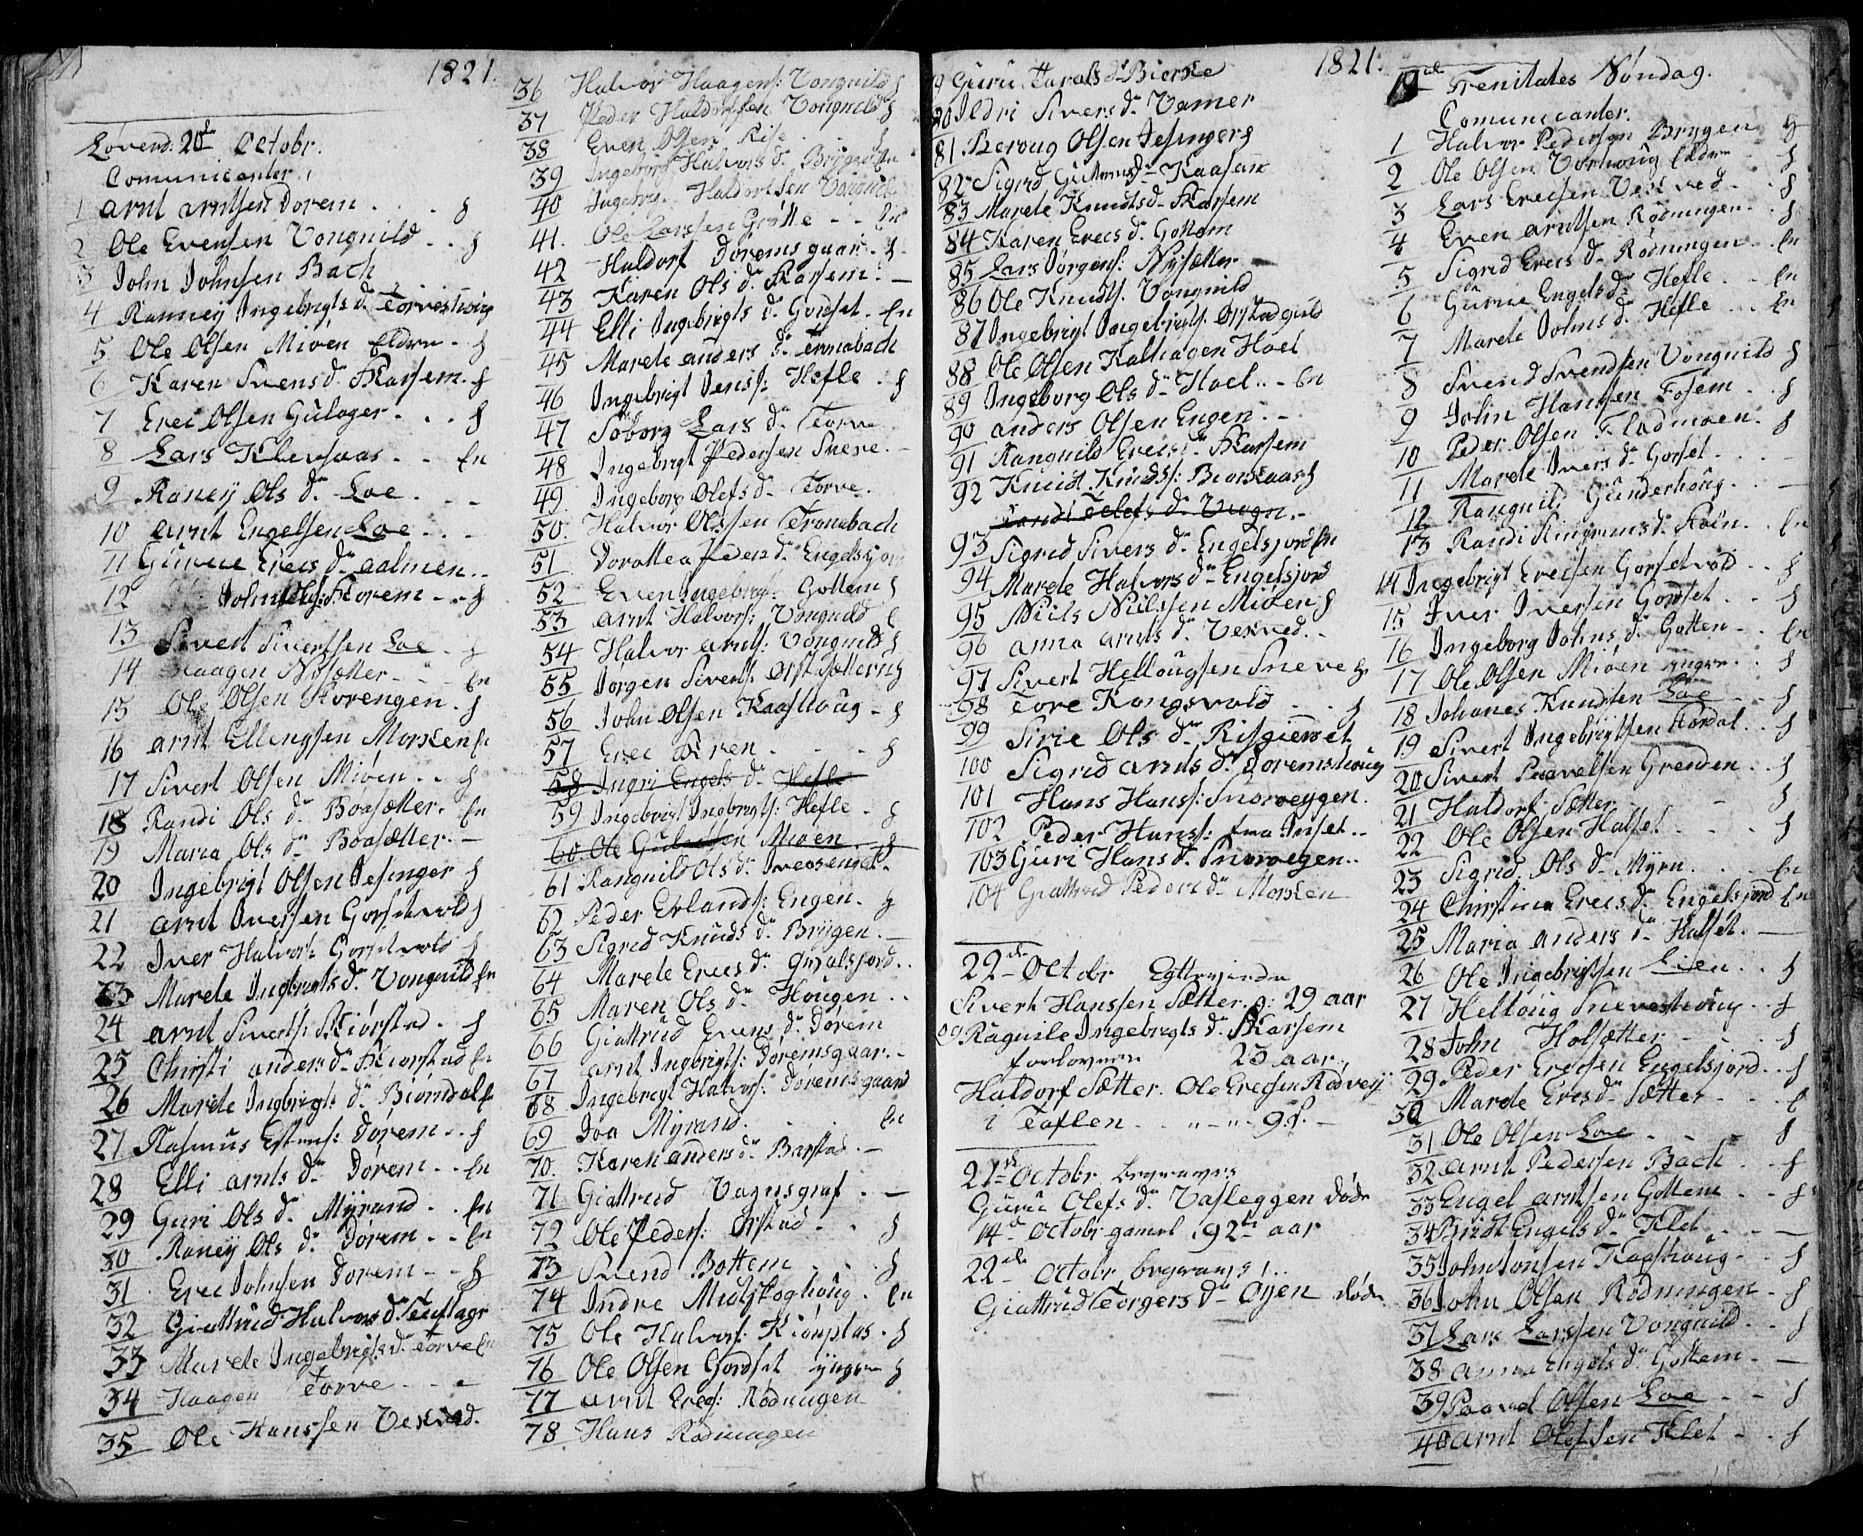 1821.
Løverd: 20de Octobr.
Comunicanter
1 Arnt Arntsen Dorem . . . f
2 Ole Evensen Vongnild . . f
3 John Johnsen Bach
4 Ranney Ingebrigts dr Torveshoug
5 Ole Olsen Miøen Eldre . f
6 Karen Svens dr Karsem . f
7 Erec Olsen Gulager . . . f
8 Lars Klevgaas . . En
9 Raney Ols dr Loe . . .
10 Arnt Engelsen Loe . . .
11 Gurue Erecs dr Aalmen . .
12 John Ols: Korem . . f
13 Sivert Sivertsen Loe . f
14 Haagen Nysætter . . . En
15 Ole Olsen Storengen . f
16 Arnt Ellingsen Morsken f
17 Sivert Olsen Miøen . . f
18 Randi Ols dr Boasætter . En
19 Maria Ols dr Boasætter . —
20 Ingebrigt Olsen Jesinger f
21 Arnt Iversen Gorsetvold f
22 Iver Halvors: Gorsetvold f
23 Marete Ingbrigts dr Vongnild En
24 Arnt Siverts: Kiorstad . f
25 Christi Anders dr Kiorstad En
26 Marete Ingbrigts dr Biørndal En
27 Rasmus Estens: Dorem . . f
28 Elli Arnts dr Dørem . . En
29 Guri Ols dr Myrand . . En
30 Raney Ols dr Dørem . . En
31 Erec Johnsen Dorem . . f
32 Giattrud Halvors dr
33 Marete Ingebrigts dr Torve En
34 Haagen Torve . . .
35 Ole Hanssen Vekved .
36 Halvor Haagens: Vongnild f
37 Peder Haldorssen Vongnild f
38 Even Olsen Rise . . . f
39 Ingeborg Halvors dr
40 Ingebrg: Haldorssen Vongnild
41. Ole Larssen Grøtte . . En
42 Haldorf Doremsgaar . f
43 Karen Ols dr Karsem . —
44 Elli Ingebrigts dr Gorset . En
45 Marete Anders dr Tronabach
46 Ingebrigt Jens: Hefle . f
47 Soborg Lars dr Torve
48 Ingebrigt Pedersen Sneve . —
49. Ingeborg Olefs dr Torve .
50. Halvor Olssen Tronabach
51 Dorottea Peder dr Engelsjor
52 Even Ingebrigts: Gottem f
53 Arnt Halvors: Vongnild f
54 Halvor Arnts: Vongnild f
55 Jorgen Siverts: f
56 John Olsen Kaashoug . f
57 Erec Aren . . . . f
58 Ingri Engels dr Hefle
59 Ingebrigt Ingbrigts: Hefle . f
60. Ole Miøen . f
61 Rangnild Ols dr
62 Peder Erlands: Engen . f
63 Sigrid Knuds dr Brygen . —
64 Marete Erecs dr . .
65 Maren Ols dr Hougen . .
66 Giattrud Evens dr Dørem
67 Arnt Ingbrigts: Døremsgaar . —
68 Ingebregt Halvors: Døremsgaard
69 Joa Myrand . . . En
70. Karen Anders dr Barstad . —
71 Giattrud Vagnsgraf . —
72 Ole Peders: Orstad . . f
73 Svend Bottem . . . f
74 Indre Midskoghoug . En
75 Ole Halvors: Kiønplas . f
76 Ole Olsen Gordset yngre f
77 Arnt Erecs: Rødningen
78 Hans Rødningen
1821.
79 Guru Haralds dr Bierke
80 Ildri Sivers dr Vamer
81. Beroug Olsen Jesinger f
82 Sigrid dr Kaasan
83 Marete Knudts dr Karsem
84 Karen Erecs dr Gottem
85 Lars Jørgens: Nysætter
86 Ole Knudts: Vongnild
87 Ingebrigt Ingebrigts:
88 Ole Olsen Kaltiagen Hoel
89 Ingeborg Ols dr Hoel . . En
90 Anders Olsen Engen . .
91 Rangnild Erecs dr Karsem
92 Knudt Knuds: Biorskaas f
Randi Olefs dr
93 Sigrid Sivers dr Engelsjord En
94 Marete Halvors dr Engelsjord
95 Niils Nilssen Miøen f
96 Anna Arnts dr Vekved . .
97 Sivert Hellougsen Sneve f
98 Tore Kongsvold . . f
99 Sirie Ols dr
100 Sigrid Arnts dr Doremshoug
101 Hans Hans: Snoeveggen .
102 Peder Hans: fra Inset . .
103 Guri Hans dr Snoeveggen . .
104 Giattrud Peders dr Morsken
22de Octobr Egteviede
Sivert Hanssen Sætter g: 29 aar
og Ragnile Ingebregts dr Karsem
forlovere 23 aar .
Haldorf Sætter . Ole Erecsen Rødvey
i Taflen . . „ – „ . 9 f. –
21de Octobr begravers
Guru Olefs dr Vasleggen døde
14de Octobr gamel 92de aar
22de Octobr begravs 1 . .
Giattrud Torgers dr Oyen døde
19de Trenitates Søndag.
Comunicanter.
1 Halvor Pedersen Brygen f
2 Ole Olsen Vorhoug Eldre . f
3 Lars Erecsen Vekved . . f
4 Even Arntsen Rødningen . f
5 Sigrid Erecs dr Rødningen . . En
6 Guruc Engels dr Hefle . . En
7 Marete Johns dr Hefle . . En
8 Svend Svendsen Vongnild f
9 John Hansen Fosem . . f
10 Peder Olsen Fladmoen . f
11 Marete Ivers dr Gorset . . —
12 Rangnil: Gunderhoug . . —
13 Randi dr . . En
14 Ingebrigt Erecsen Gorsetvold . . f
15 Iver Iversen Gordset . . f
16 Ingeborg Johns dr Gotten . . En
17 Ole Olsen Miøen yngre . . f
18 Johanes Knudten Loe . . f
19 Sivert Ingebrigtsen Hordal . . f
20 Sivert Paavelsen Grenden . . f
21 Haldorf: Sætter . . f
22 Ole Olsen Halset . . . f
23 Sigrid Ols dr Myrn . . En
24 Christina Erecs dr Engelsjord En
25 Maria Anders dr Halset . —
26 Ole Ingebrigtsen Lien . . f
27 Helloug Sneveshoug . . f
28 John Holsætter . . . f
29 Peder Erecsen Engelsjord . . f
30 Marete Erecs dr Sætter . . .
31 Ole Olsen Loe . . . f
32 Arnt Pedersen Bach . . f
33 Engel Arntsen Gottem . . f
34 Engels dr Klet . . —
35 John Jonsen Kaashoug . . f
36 John Olsen Rødningen . f
37 Lars Larssen Vongnild . . f
38 Anna Engels dr Gottem . . —
39 Paavel Olsen Loe . . f
40 Arnt Olefsen Klet . . f